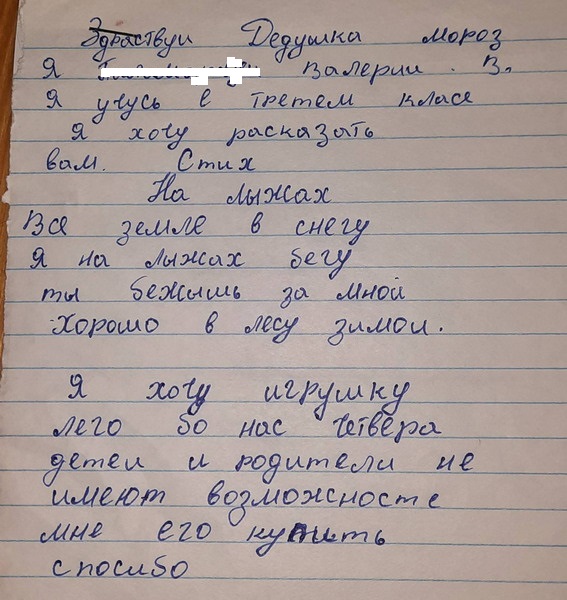 Здраствуи Дедушка мороз
Я Валерии . В.
Я учусь в третем класе
Я хочу расказать
вам. Стих
На лыжах
Вся земле в снегу
Я на лыжах бегу
ты бежышь за мной
Хорошо в лесу зимои.
Я хочу игрушку
лего бо нас четвера
детеи и родители не
имеют возможносте
мне его купить
спосибо